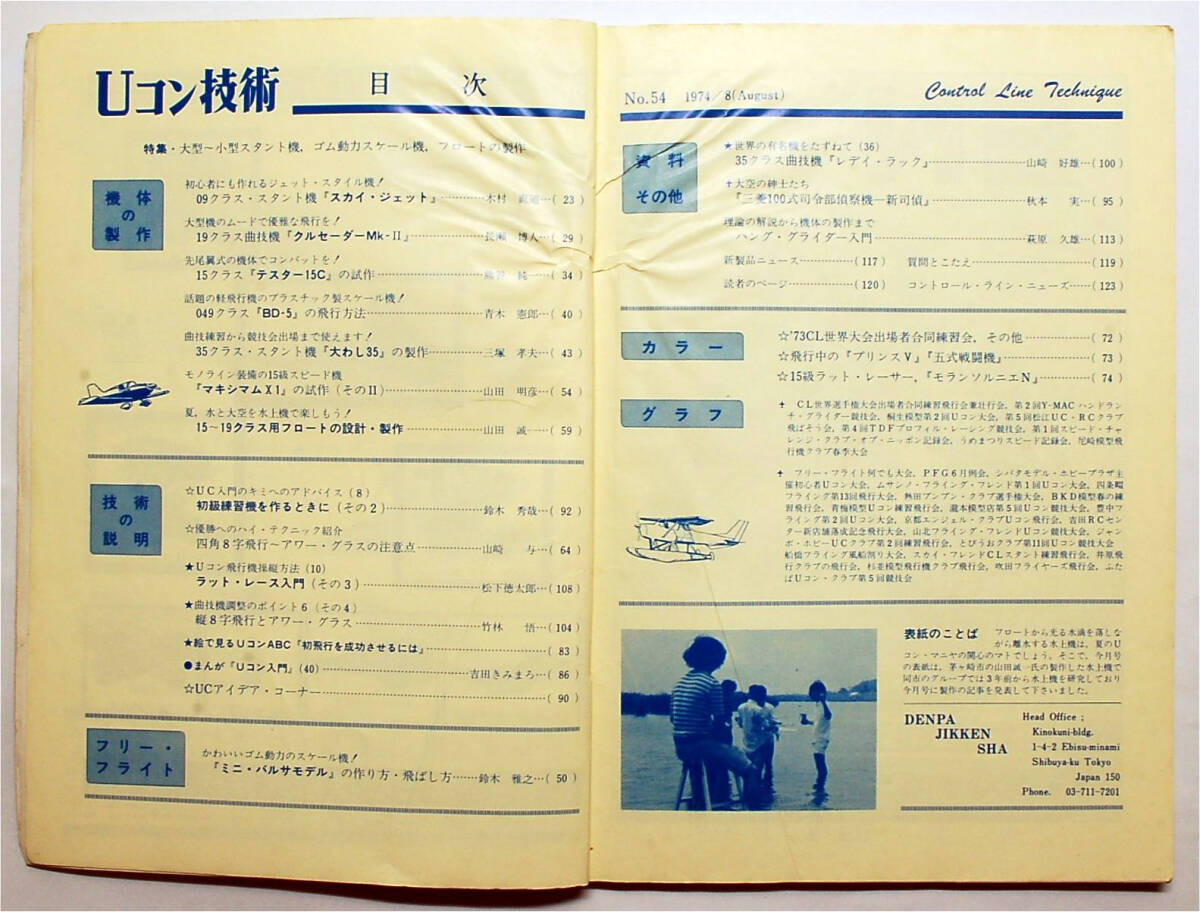 Uコン技術 目次
特集・大型~小型スタント機，ゴム動力スケール機，フロートの製作
機体
の
製作
初心者にも作れるジェット・スタイル機！
09クラス・スタント機『スカイ・ジェット』…………木村 …( 23 )
大型機のムードで優雅な飛行を！
19クラス曲技機『クルセーダーMk-II』…………長瀬 博人…( 29 )
先尾翼式の機体でコンバットを！
15クラス『テスター15C』の試作………… 純一…( 34 )
話題の軽飛行機のプラスチック製スケール機！
049クラス『BD-5』の飛行方法…………青木 憲郎…( 40 )
曲技練習から競技会出場まで使えます！
35クラス・スタント機『大わし35』の製作…………三塚 孝夫…( 43 )
モノライン装備の15級スピード機
『マキシマムX1』の試作（そのII）…………山田 明彦…( 54 )
夏，水と大空を水上機で楽しもう！
15~19クラス用フロートの設計・製作…………山田 誠……( 59 )
技術
の
説明
☆UC入門のキミへのアドバイス（8）
初級練習機を作るときに（その2）…………鈴木 秀哉…( 92 )
☆優勝へのハイ・テクニック紹介
四角8字飛行~アワー・グラスの注意点…………山崎 与…( 64 )
★Uコン飛行機操縦方法（10）
ラット・レース入門（その3）…………松下徳太郎…( 108 )
★曲技機調整のポイント6（その4）
縦8字飛行とアワー・グラス…………竹林 悟…( 104 )
★絵で見るUコンABC『初飛行を成功させるには』…………( 83 )
●まんが『Uコン入門』（40）…………吉田きみまろ…( 86 )
☆UCアイデア・コーナー…………( 90 )
フリー・
フライト
かわいいゴム動力のスケール機！
『ミニ・バルサモデル』の作り方・飛ばし方……鈴木 雅之…( 50 )
No.54 1974/8(August) Control Line Technique
資料
その他
★世界の有名機をたずねて（36）
35クラス曲技機『レディ・ラック』…………山崎 好雄…( 100 )
✝大空の紳士たち
『三菱100式司令部偵察機―新司偵』…………秋本 実…( 95 )
理論の解説から機体の製作まで
ハング・グライダー入門…………萩原 久雄…( 113 )
新製品ニュース…………( 117 ) 質問とこたえ…………( 119 )
読者のページ…………( 120 ) コントロール・ライン・ニュース……( 123 )
カラー
☆'73CL世界大会出場者合同練習会，その他…………( 72 )
☆飛行中の『プリンスV』『五式戦闘機』…………( 73 )
☆15級ラット・レーサー，『モランソルニエN』…………( 74 )
グラフ
✝ CL世界選手権大会出場者合同練習飛行会兼壮行会，第2回Y-MACハンドラン
チ・グライダー競技会，桐生模型第2回Uコン大会，第5回松江UC・RCクラブ
飛ばそう会，第4回TDFプロフィル・レーシング競技会，第1回スピード・チャ
レンジ・クラブ・オブ・ニッポン記録会，うめまつりスピード記録会，尼崎模型飛
行機クラブ春季大会
✝ フリー・フライト何でも大会，PFG6月例会，シバタモデル・ホビープラザ主
催初心者Uコン大会，ムサシノ・フライング・フレンド第1回Uコン大会，四条畷
フライング第13回飛行大会，熱田ブンブン・クラブ選手権大会，BKD模型春の練
習飛行会，青梅模型Uコン練習飛行会，瀧本模型店第5回Uコン競技大会，豊中フ
ライング第2回Uコン大会，京都エンジェル・クラブUコン飛行会，吉田RCセン
ター新店舗落成記念飛行大会，山北フライング・フレンドUコン競技大会，ジャン
ボ・ホビーUCクラブ第2回練習飛行会，とびうおクラブ第11回Uコン競技大会
船橋フライング風船割り大会，スカイ・フレンドCLスタント練習飛行会，井原飛
行クラブの飛行会，杉並模型飛行機クラブ飛行会，吹田フライヤーズ飛行会，ふた
ばUコン・クラブ第5回競技会
表紙のことば フロートから光る水滴を落しな
がら離水する水上機は，夏のU
コン・マニヤの関心のマトでしょう。そこで，今月号
の表紙は，茅ヶ崎市の山田誠一氏の製作した水上機で
同市のグループでは3年前から水上機を研究しており
今月号に製作の記事を発表して下さいました。
DENPA
JIKKEN
SHA
Head Office ;
Kinokuni-bldg.
1-4-2 Ebisu-minami
Shibuya-ku Tokyo
Japan 150
Phone. 03-711-7201